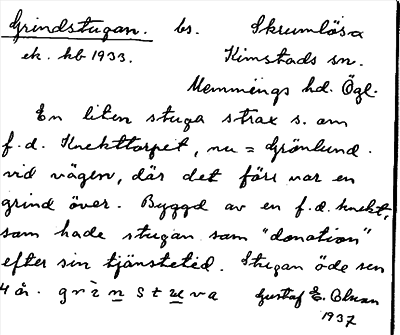 Grindstugan. bs. Skrumlösa
ek. kb 1933. Kimstads sn.
Memmings hd. Ögl.
En liten stuga strax s. om
f.d. Knekttorpet, nu = Grönlund.
vid vägen, där det förr var en
grind över. Byggd av en f.d. knekt,
som hade stugan som "donation"
efter sin tjänstetid. Stugan öde sen
4 år. Gustaf E. Olsson
1937